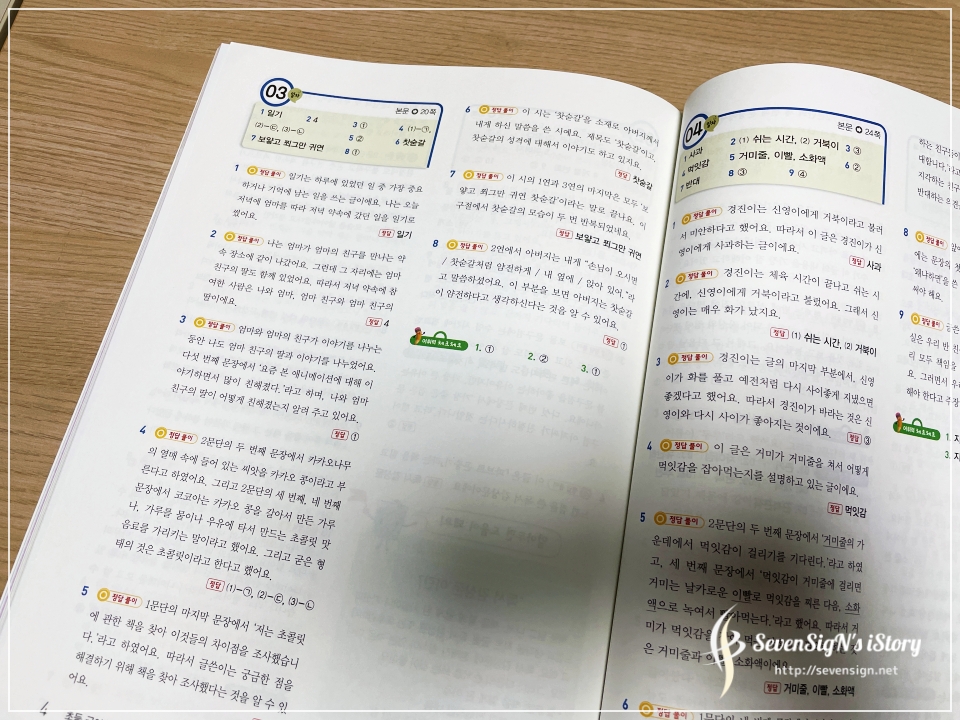 03
본문 20쪽
1 일기
2 4
3 ①
4 (1)-㉠,
(2)-㉢, (3)-㉡
5 ②
6 찻숟갈
7 보얗고 쬐그만 귀연
8 ①
1 정답 풀이 일기는 하루에 있었던 일 중 가장 중요
하거나 기억에 남는 일을 쓰는 글이에요. 나는 오늘
저녁에 엄마를 따라 저녁 약속에 갔던 일을 일기로
썼어요.
정답 일기
2 정답 풀이 나는 엄마가 엄마의 친구를 만나는 약
속 장소에 같이 나갔어요. 그런데 그 자리에는 엄마
친구의 딸도 함께 있었어요. 따라서 저녁 약속에 참
여한 사람은 나와 엄마, 엄마 친구와 엄마 친구의
딸이에요.
정답 4
3 정답 풀이 엄마와 엄마의 친구가 이야기를 나누는
동안 나도 엄마 친구의 딸과 이야기를 나누었어요.
다섯 번째 문장에서 '요즘 본 애니메이션에 대해 이
야기하면서 많이 친해졌다.'라고 하며, 나와 엄마
친구의 딸이 어떻게 친해졌는지 알려 주고 있어요.
정답 ①
4 정답 풀이 2문단의 두 번째 문장에서 카카오나무
의 열매 속에 들어 있는 씨앗을 카카오 콩이라고 부
른다고 하였어요. 그리고 2문단의 세 번째, 네 번째
문장에서 코코아는 카카오 콩을 갈아서 만든 가루
나, 가루를 물이나 우유에 타서 만드는 초콜릿 맛
음료를 가리키는 말이라고 했어요. 그리고 굳은 형
태의 것은 초콜릿이라고 한다고 했어요.
정답 (1)-㉠, (2)-㉢, (3)-㉡
5 정답 풀이 1문단의 마지막 문장에서 '저는 초콜릿
에 관한 책을 찾아 이것들의 차이점을 조사했습니
다.'라고 하였어요. 따라서 글쓴이는 궁금한 점을
해결하기 위해 책을 찾아 조사했다는 것을 알 수 있
어요.
4
6 정답 풀이 이 시는 '찻숟갈'을 소재로 아버지께서
내게 하신 말씀을 쓴 시예요. 제목도 '찻숟갈'이고,
찻숟갈의 성격에 대해서 이야기도 하고 있지요.
정답 찻숟갈
7 정답 풀이 이 시의 1연과 3연의 마지막은 모두 '보
얗고 쬐그만 귀연 찻숟갈'이라는 말로 끝나요. 이
구절에서 찻숟갈의 모습이 두 번 반복되었네요.
정답 보얗고 쬐그만 귀연
8 정답 풀이 2연에서 아버지는 내게 "손님이 오시면
/ 찻숟갈처럼 얌전하게 / 내 옆에 / 앉아 있어."라
고 말씀하셨어요. 이 부분을 보면 아버지는 찻숟갈
이 얌전하다고 생각하신다는 것을 알 수 있어요.
정답 ①
1. ①
2. ②
3. ①
04
본문 24쪽
1 사과
2 (1) 쉬는 시간, (2) 거북이
3 ③
4 먹잇감
5 거미줄, 이빨, 소화액
6 ②
7 반대
8 ③
9 ④
1 정답 풀이 경진이는 신영이에게 거북이라고 불러
서 미안하다고 했어요. 따라서 이 글은 경진이가 신
영이에게 사과하는 글이에요.
정답 사과
2 정답 풀이 경진이는 체육 시간이 끝나고 쉬는 시
간에, 신영이에게 거북이라고 불렀어요. 그래서 신
영이는 매우 화가 났지요.
정답 (1) 쉬는 시간, (2) 거북이
3 정답 풀이 경진이는 글의 마지막 부분에서, 신영
이가 화를 풀고 예전처럼 다시 사이좋게 지냈으면
좋겠다고 했어요. 따라서 경진이가 바라는 것은 신
영이와 다시 사이가 좋아지는 것이에요.
정답 ③
4 정답 풀이 이 글은 거미가 거미줄을 쳐서 어떻게
먹잇감을 잡아먹는지를 설명하고 있는 글이에요.
정답 먹잇감
5 정답 풀이 2문단의 두 번째 문장에서 '거미줄의 가
운데에서 먹잇감이 걸리기를 기다린다.'라고 하였
고, 세 번째 문장에서 '먹잇감이 거미줄에 걸리면
거미는 날카로운 이빨로 먹잇감을 찌른 다음, 소화
액으로 녹여서 빨아먹는다.'라고 했어요. 따라서 거
미가 먹잇감을
은 거미줄과 소화액이에요.
정답 거미줄, 이빨, 소화액
6 정답 풀이 1문단의
하는 친구들이
대합니다.'라고
지각하는 친구
반대하는
8
에는 문장의
'왜냐하면'을 쓴
써야 해요.
9
실은 우리 반 친
리 모두 책임을
요. 그러면서 우리
해야 한다고 주장
1.
3.
SevenSigN's iStory
http://sevensign.net